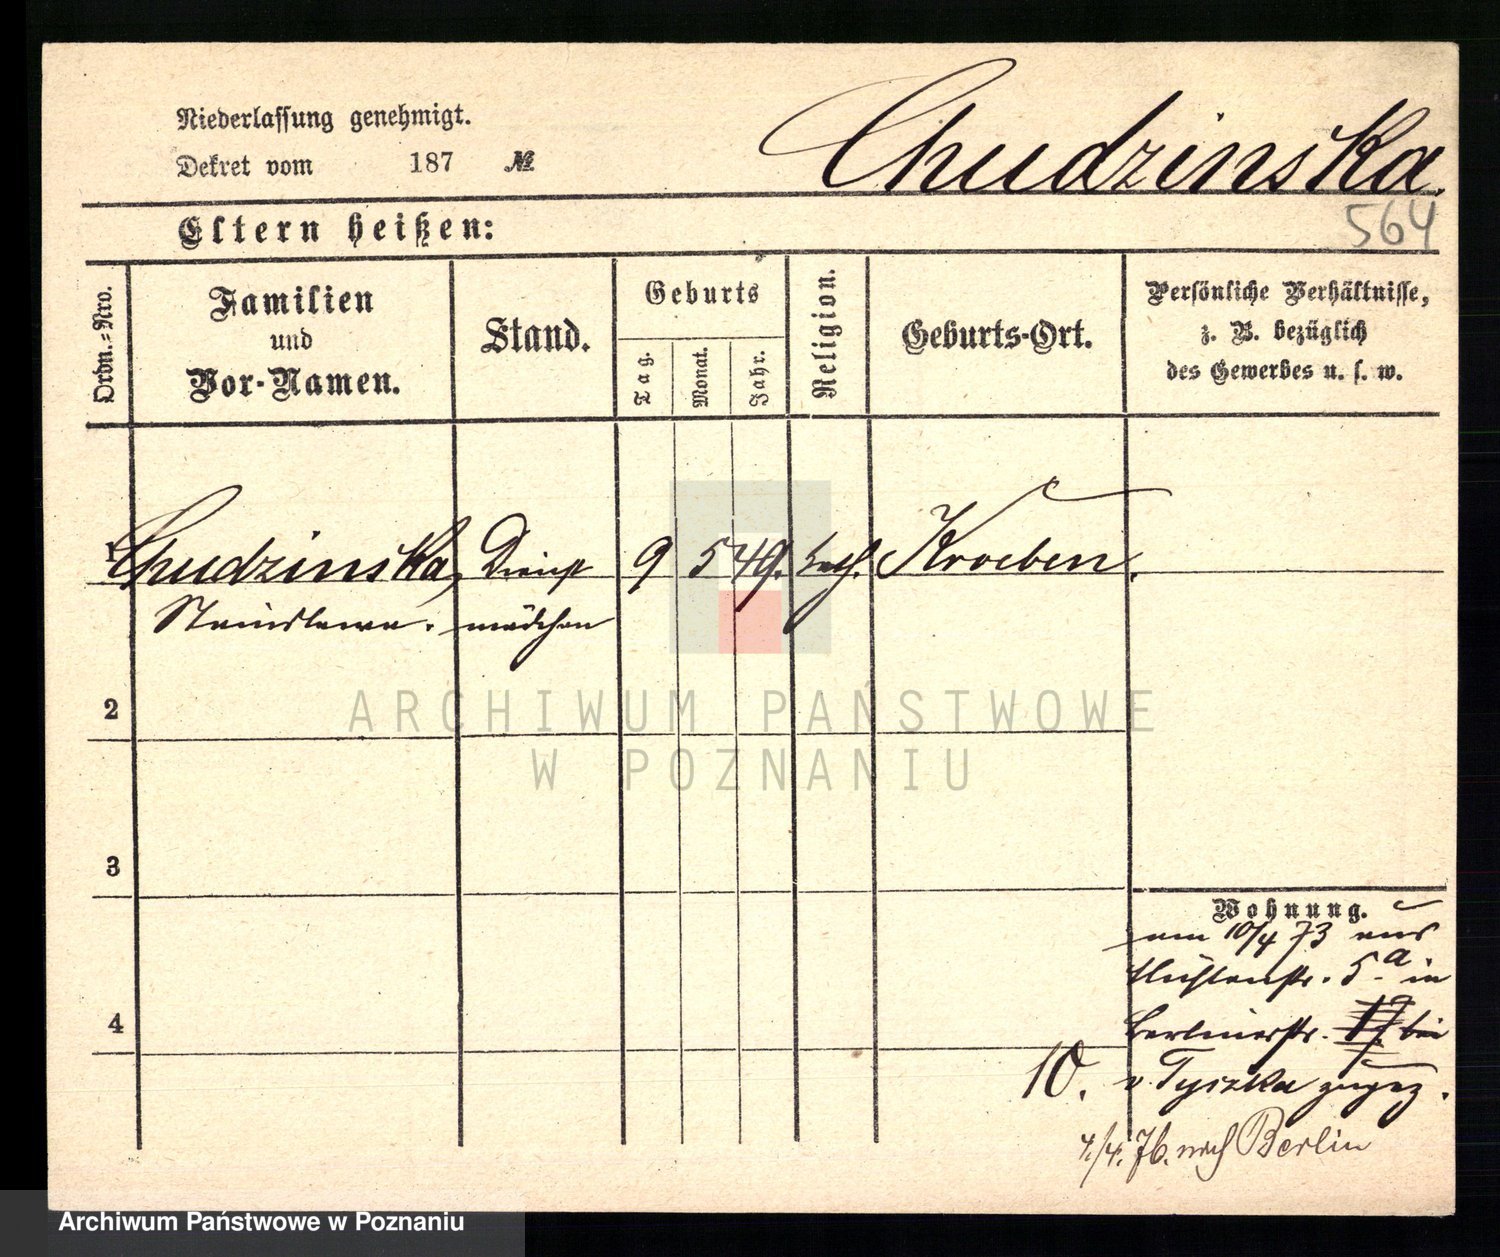 Niederlassung genehmigt.
Dekret vom 187 №
Chudzinska.
564
Eltern heißen:
Ordn.-Nro.
Familien
und
Vor-Namen.
Stand.
Geburts
Tag.
Monat.
Jahr.
Religion.
Geburts-Ort.
Persönliche Verhältnisse,
z. B. bezüglich
des Gewerbes u. s. w.
1 Chudzinska, Dienst 9 5 49. kath. Kroeben.
Stanislawa. mädchen
2
3
4
Wohnung.
am 10/4 73 aus
5.a in
Berlinerstr. 19. bei
10. v Tyszka zugez.
4./4. 76. nach Berlin
ARCHIWUM PAŃSTWOWE
W POZNANIU
Archiwum Państwowe w Poznaniu